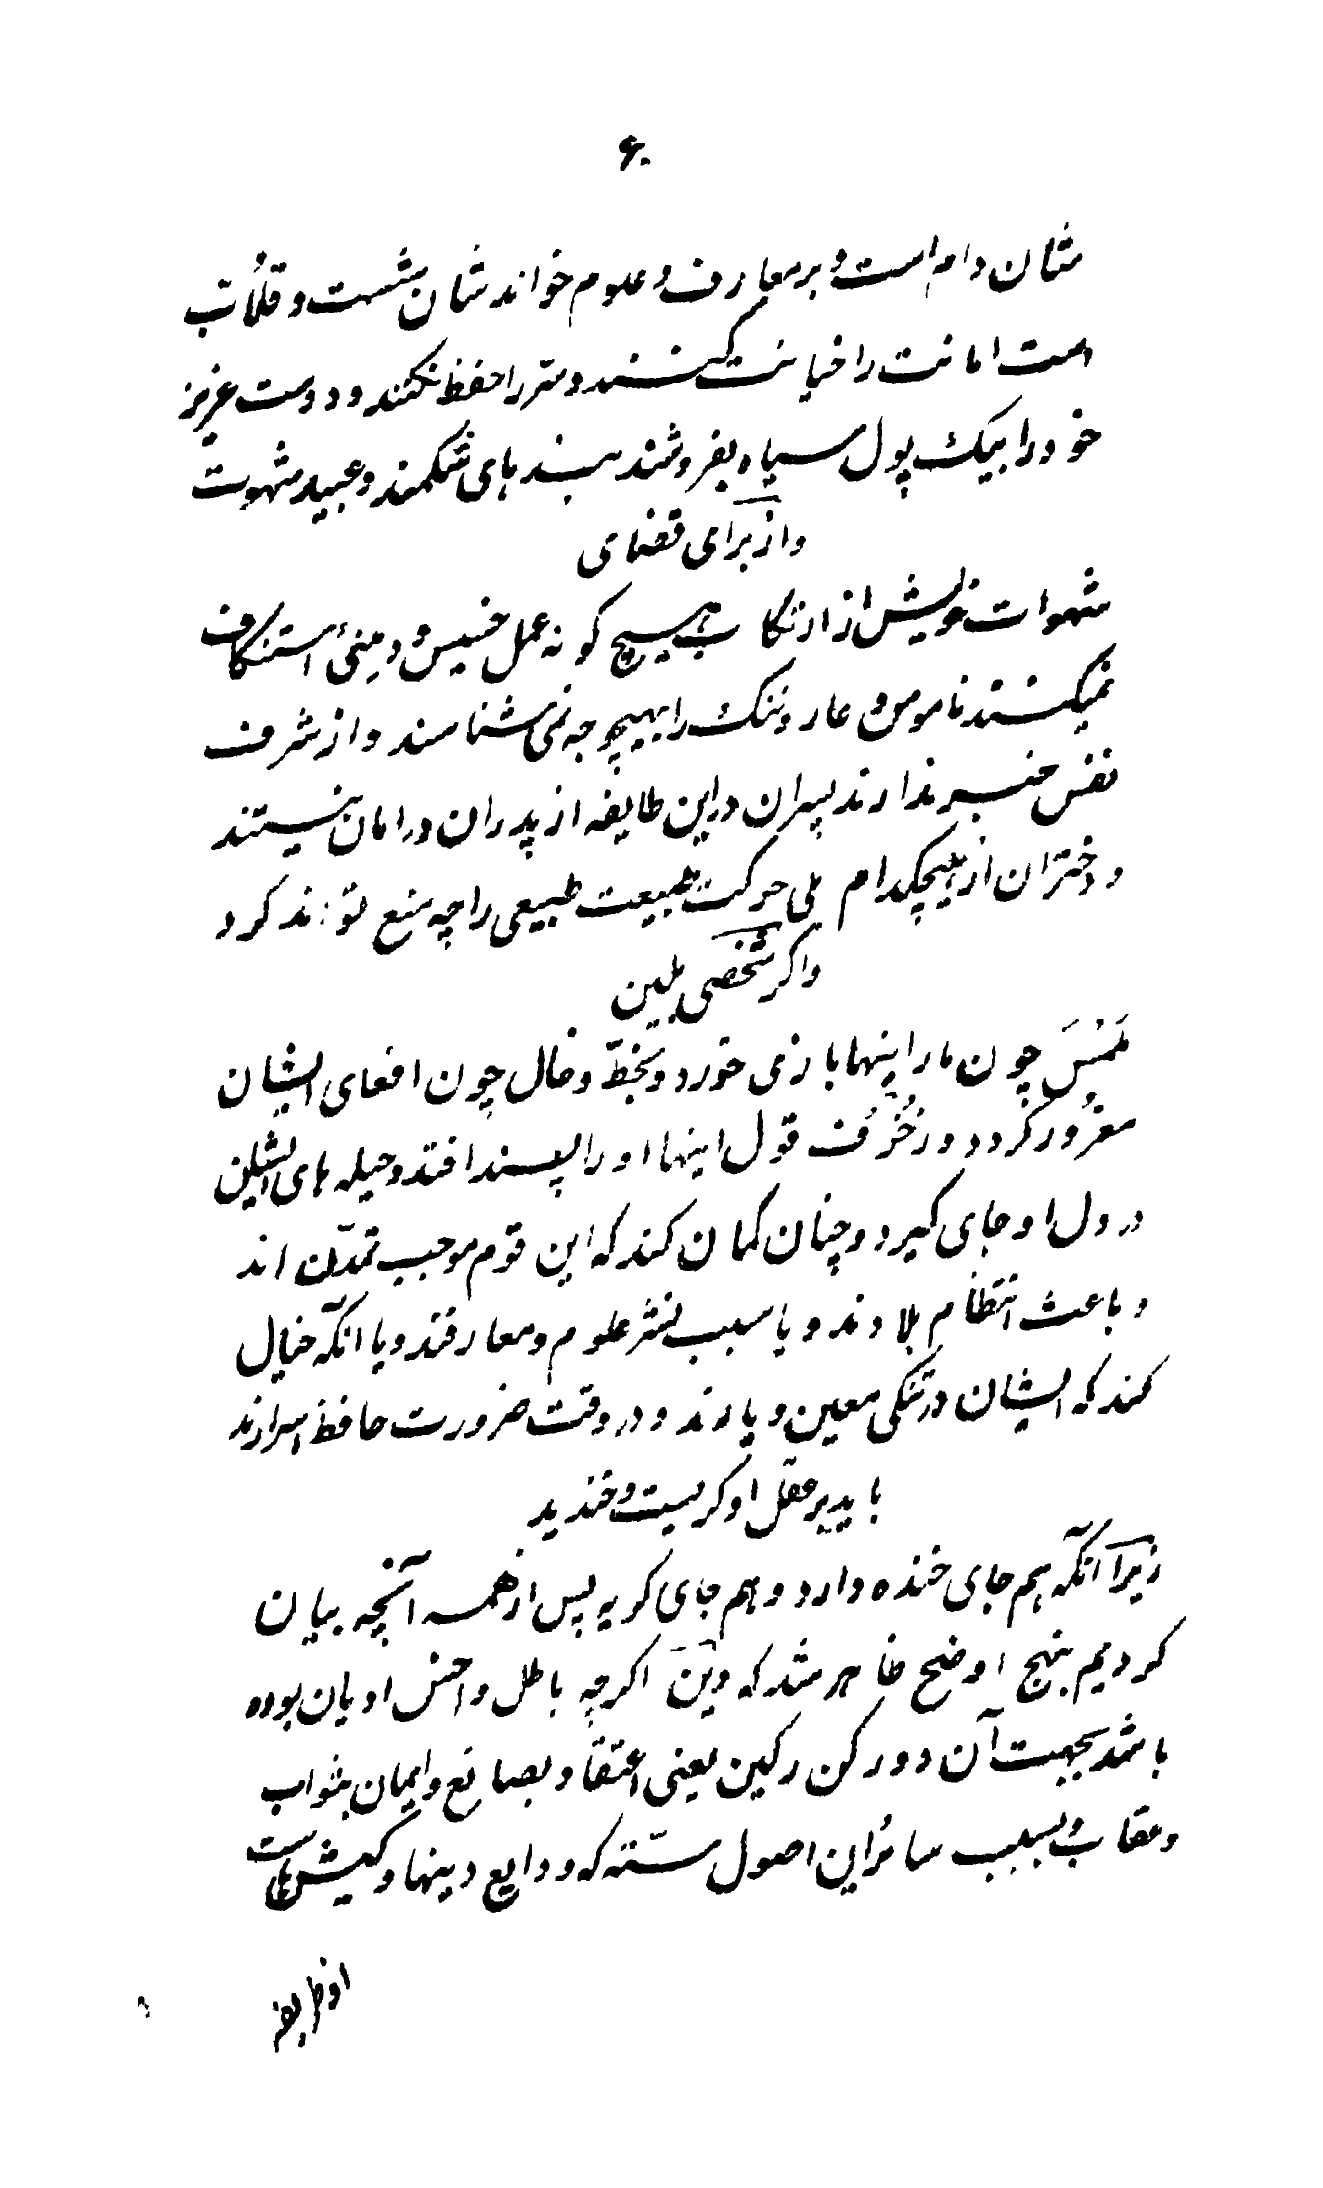 ۶۰
شان دام است و بر معارف و علوم خواندشان شست و قلّاب
است امانت را خیانت کنند و سرّ را حفظ نکنند و دوست عزیز
خود را بیک پول سیاه بفروشند بنده‌های شکمند و عبید شهوت
و از برای قضای
شهوات خویش از ارتکاب هیچ گونه عمل خسیس و دمینئ استنکاف
نمیکنند ناموس و عار و ننک را بهیچوجه نمی شناسند و از شرف
نفس خبر ندارند پسران در این طایفه از پدران در امان نیستند
و دختران از هیچکدام بلی حرکت طبیعت طبیعی را چه منع تواند کرد
و اگر شخصی بلین
مَلْمَسَ چون مار اینها بازی خورد و بخطّ و خال چون افعای ایشان
مغرور گردد و زُخرُف قول اینها او را پسند افتد و حیله های ایشان
در دل او جای گیرد و چنان گمان کند که این قوم موجب تمدّن اند
و باعث انتظام بلادند و یا سبب نشر علوم و معارفند و یا آنکه خیال
کند که ایشان در تنگی معین و یارند و در وقت ضرورت حافظ اسرارند
باید بر عقل او گریست و خندید
زیرا آنکه هم جای خنده دارد و هم جای گریه پس از همه آنچه بیان
کردیم بنهج اوضح ظاهر شد که دین اگرچه باطل و اخس ادیان بوده
باشد بجهت آن دو رکن رکین یعنی اعتقاد بصانع و ایمان بثواب
و عقاب و بسبب سائر این اصول ستّه که ودایع دینها و کیشهاست